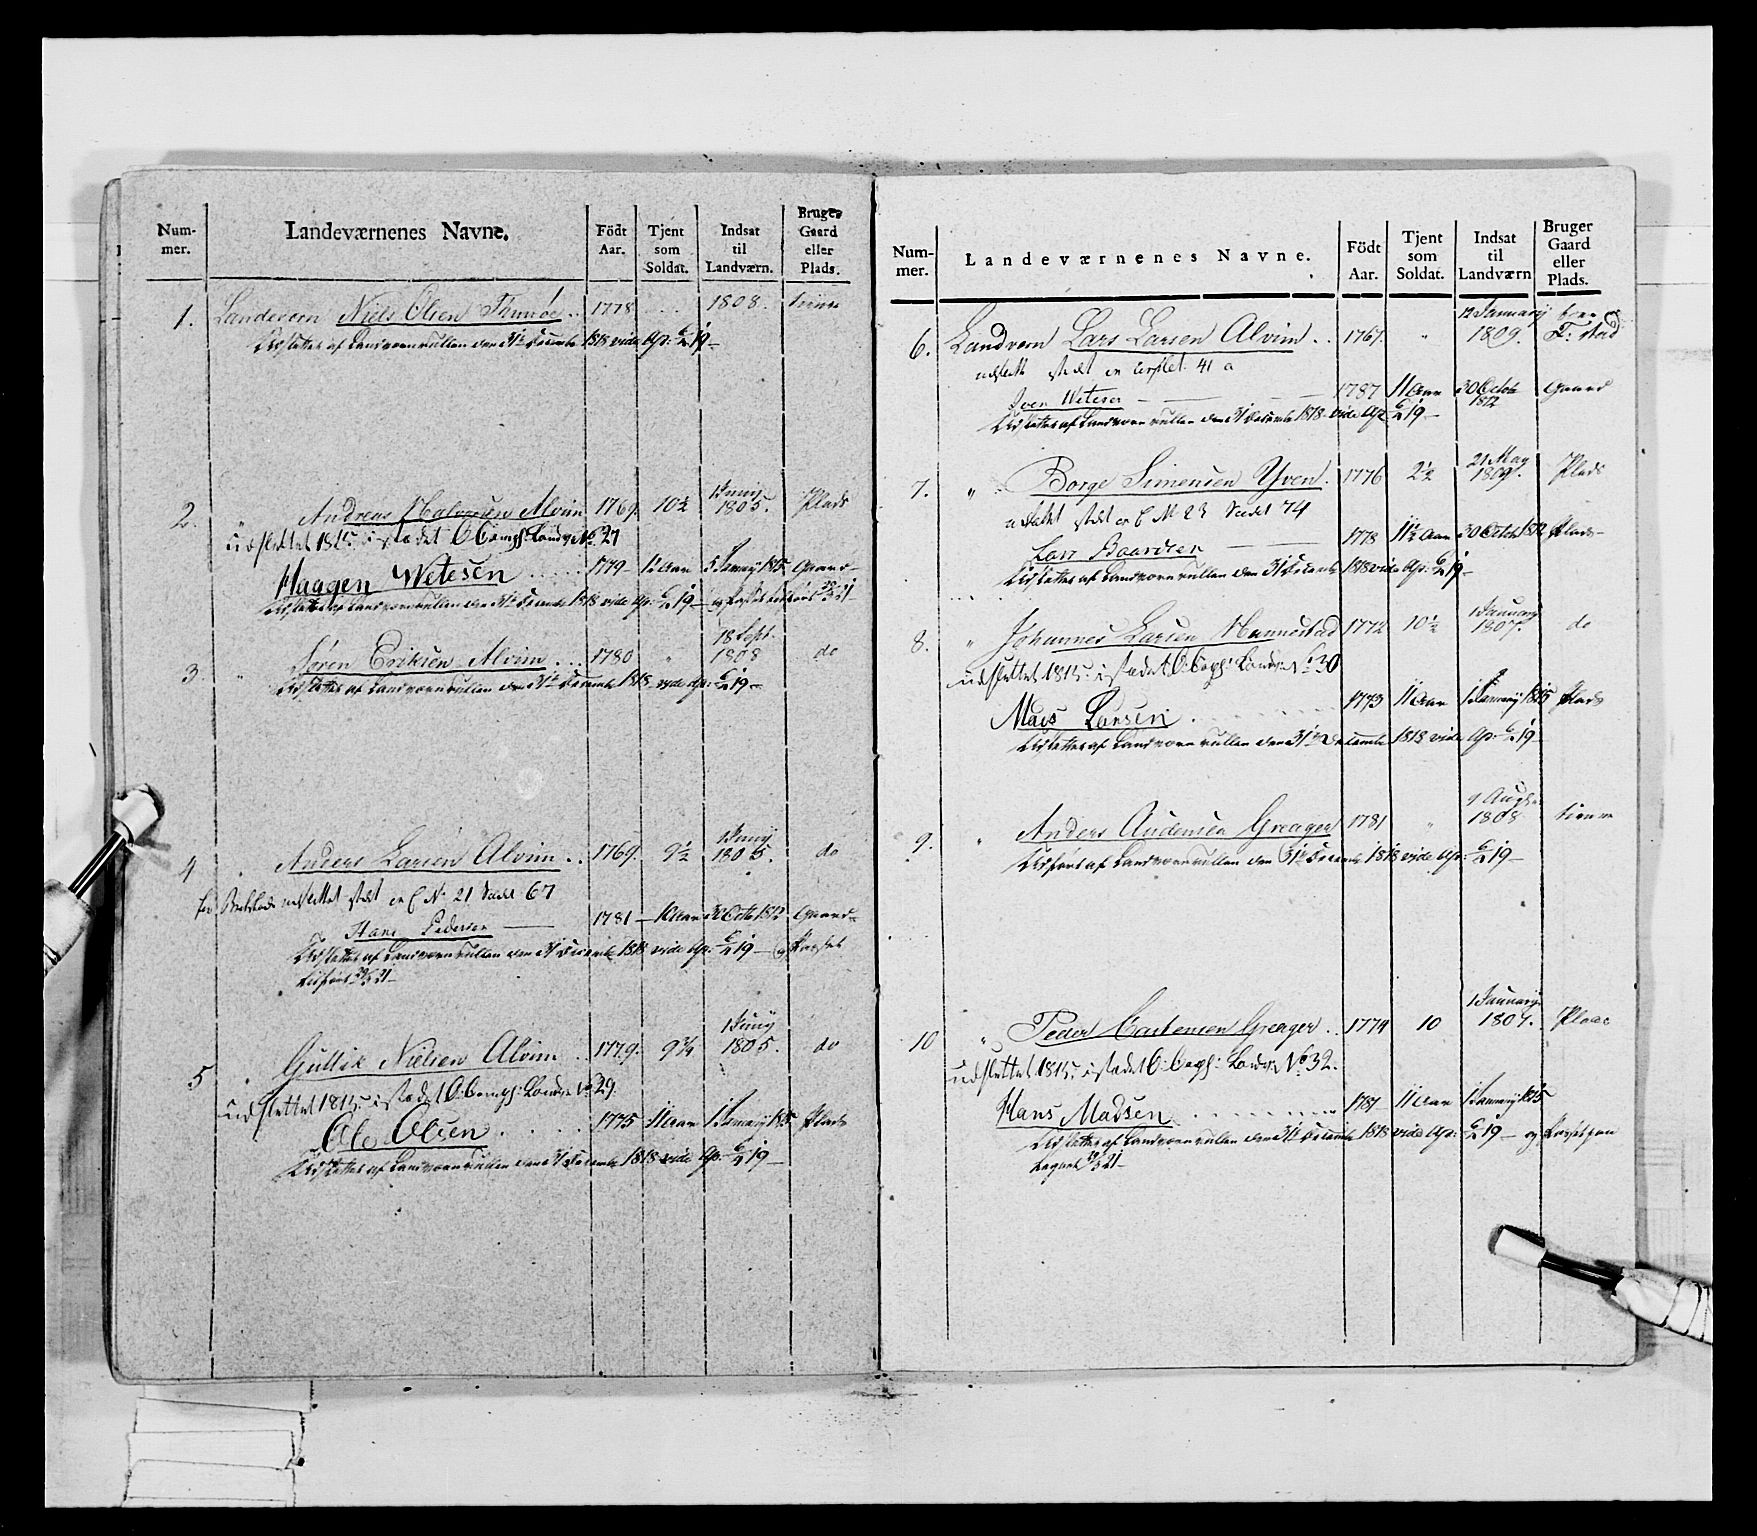 Num-
mer.
Landeværnenes Navne.
Födt
Aar.
Tjent
som
Soldat.
Indsat
til
Landværn.
Bruger
Gaard
eller
Plads.
1. Landevern Niels Olsen 1778 .... 1808. tienne
Udslettet af Landværnrullen den 31te Decembr 1818 vide Ap:
2. " Andreas Halvorsen Alvim 1769. 10½ 1 Junij 1805. Plads
udslettet 1815. i stædet C Compg: Landv: No. 27
Haagen Wetesen ..... 1779 Gaard
Udslettet af Landværnrullen den 31te Decembr 1818 vide Ap:
3. " Sören Eriksen Alvim ... 1780 " 18 Sept. 1808 do
Udslettet af Landværnrullen den 31te Decembr 1818 vide Ap:
4 " Anders Larsen Alvim .. 1769. 9½ 1 Junij 1805. do
udslettet stædt er C No. 21 Sædet 67
Hans Pedersen — 1781 — 30 Octb 1812 Gaard
Udslettet af Landværnrullen den 31 Decembr 1818 vide Ap:
5 " Gullik Nielsen Alvim .. 1779. 9¾ 1 Junij 1805. do
udslettet 1815. i stædet C: Compg: Landv: No. 29.
Ole Olsen ..... 1775 11 Aar 1 Januarij 1815 Plads
Udslettet af Landværnrullen den 31 Decembr 1818 vide Ap:
Num-
mer.
Landeværnenes Navne.
Födt
Aar.
Tjent
som
Soldat.
Indsat
til
Landværn
Bruger
Gaard
eller
Plads.
6. Landvern Lars Larsen Alvim .. 1767. " 12 Januarij 1809. boer F: stad
udslett stædt er 41 a
Iver Wetesen — 1787 11 Aar 30 Octob 1812 Gaard
Udslettet af Landværnrullen den 31 Decembr 1818 vide Ap:
7. " Borge Simensen Yven. 1776 2½ 21 May 1809. Plads
udslettet stædt er C No 23 Sædet 74
Lars Baardsen — 1778 11½ Aar 30 Octob 1812 Plads
Udslettet af Landværnrullen den 31 Decembr 1818 vide Ap:
8. " Johannes Larsen Hannestad 1772 10½ 1 Januarij 1807. do
udslettet 1815. i stædet C: Cogh: Landv: No. 30
Mads Larsen ..... 1773 11 Aar 1 Januarij 1815 Plads
Udslettet af Landværnrullen den 31te Decembr 1818 vide Ap:
9. " Anders Audensen Greager 1781 " 9 Augst 1808 tienne
Udfört af Landværnrullen den 31te Decembr 1818 vide Ap:
10 " Peder Carlensen Greager .. 1774 10 1 Januarij 1807. Plads
udslettet 1815. i stædet C: Cogh: Landv: No. 32.
Hans Madsen ..... 1781 11 Aar 1 Januarij 1815
Udslettet af Landværnrullen den 31te Decembr 1818 vide Ap: